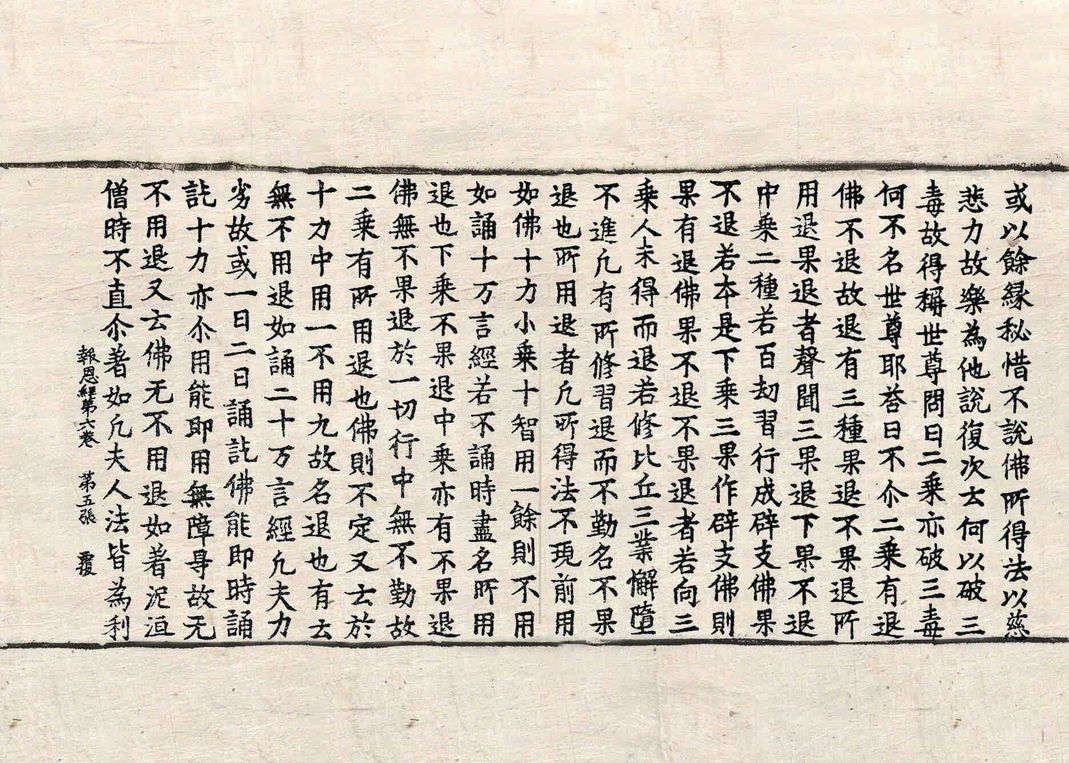 或以餘緣秘惜不說佛所得法以慈
悲力故樂為他說復次云何以破三
毒故得稱世尊問曰二乘亦破三毒
何不名世尊耶荅曰不尒二乘有退
佛不退故退有三種果退不果退所
用退果退者聲聞三果退下果不退
中乘二種若百劫習行成辟支佛果
不退若本是下乘三果作辟支佛則
果有退佛果不退不果退者若向三
乘人未得而退若修比丘三業懈墮
不進凢有所修習退而不勤名不果
退也所用退者凢所得法不現前用
如佛十力小乘十智用一餘則不用
如誦十万言經若不誦時盡名所用
退也下乘不果退中乘亦有不果退
佛無不果退於一切行中無不勤故
二乘有所用退也佛則不定又云於
十力中用一不用九故名退也有云
無不用退如誦二十万言經凢夫力
劣故或一日二日誦訖佛能即時誦
訖十力亦尒用能即用無障㝵故无
不用退又云佛无不用退如著泥洹
僧時不直尒著如凢夫人法皆為利
報恩經第六卷 第五張 覆